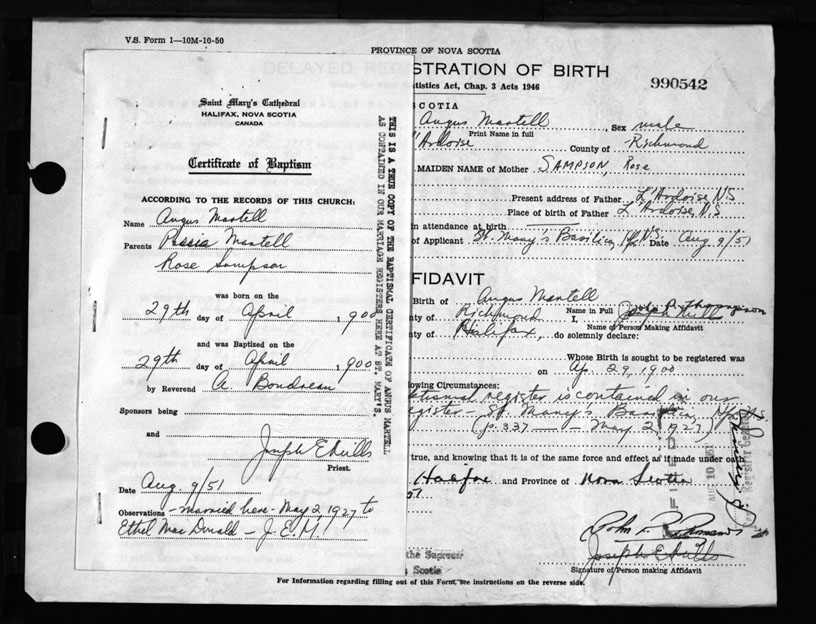 V.S. Form 1—10M-10-50
PROVINCE OF NOVA SCOTIA
STRATION OF BIRTH
tistics Act, Chap. 3 Acts 1946
990542
SCOTIA
Angus Martell, Sex male
Print Name in full
L'Ardoise County of Richmond
MAIDEN NAME of Mother SAMPSON, Rose
Present address of Father L'Ardoise, N.S
Place of birth of Father L'Ardoise, N.S
in attendance at birth
of Applicant St. Mary's Basilica, Hfx N.S. Date Aug 9/51
FIDAVIT
Birth of Angus Martell
Name in Full
ty of Richmond I,
Name of Person Making Affidavit
ty of Halifax, do solemnly declare:
Whose Birth is sought to be registered was
on Ap. 29, 1900
owing Circumstances:
ptismal register is contained in our
egister - St. Mary's Basilica,
(p. 337 — May 2, 1927)
true, and knowing that it is of the same force and effect as if made under oath
Halifax and Province of Nova Scotia
FILED
AUG 10 1951
Registrar General
the Supreme
Scotia
Signature of Person making Affidavit
For Information regarding filling out of this Form, see instructions on the reverse side.
Saint Mary's Cathedral
HALIFAX, NOVA SCOTIA
CANADA
Certificate of Baptism
ACCORDING TO THE RECORDS OF THIS CHURCH:
Name Angus Martell
Parents Martell
Rose Sampson
was born on the
29th day of April, 1900
and was Baptized on the
29th day of April 1900
by Reverend A. Boudreau
Sponsors being
and
Joseph E Mills
Priest.
Date Aug. 9/51
Observations - married here - May 2, 1927 to
Ethel Mac Donald - J.E.M.
THIS IS A TRUE COPY OF THE BAPTISMAL CERTIFICATE OF ANGUS MARTELL
AS CONTAINED IN OUR MARRIAGE REGISTERS HERE AT ST. MARY'S.